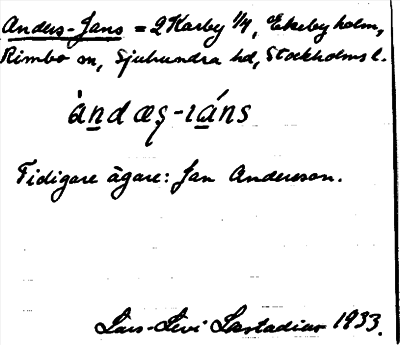 Anders-Jans = 2 Karby 1/4, Ekeby holm,
Rimbo sn, Sjuhundra hd, Stockholms l.
àndæș-ıáns
Tidigare ägare: Jan Andersson.
Lars-Levi Læstadius 1933.